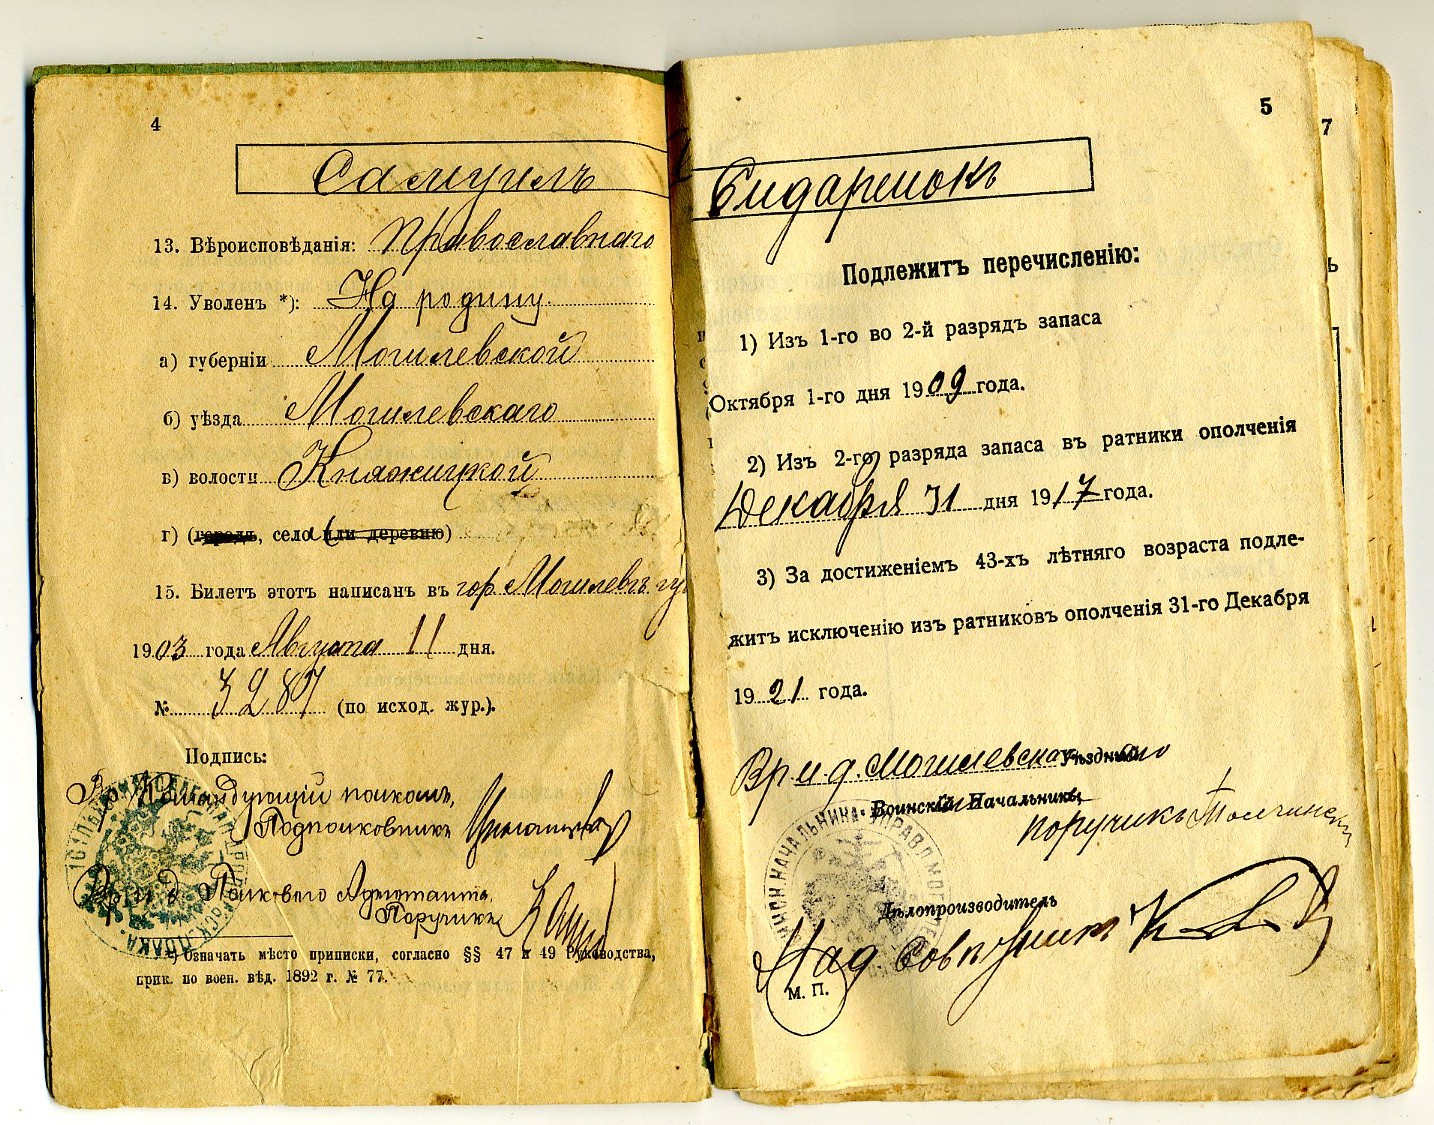 4
Самуилъ
13. Вѣроисповѣданія: Православнаго
14. Уволенъ *): На родину.
а) губерніи Могилевской
б) уѣзда Могилевскаго
в) волости Княжицкой
г) (городъ, село или деревню)
15. Билетъ этотъ написанъ въ гор. Могилевѣ гу
1903 года Августа 11 дня.
№ 3287 (по исход. жур.).
Подпись:
Командующій полкомъ,
Подполковникъ
Вр. и. д. Полковаго Адъютанта,
Поручикъ
*) Означать мѣсто приписки, согласно §§ 47 и 49 Руководства,
прик. по воен. вѣд. 1892 г. № 77.
5
Сидаренокъ
Подлежитъ перечисленію:
1) Изъ 1-го во 2-й разрядъ запаса
Октября 1-го дня 1909 года.
2) Изъ 2-го разряда запаса въ ратники ополченія
Декабря 31 дня 1917 года.
3) За достиженіемъ 43-хъ лѣтняго возраста подле-
житъ исключенію изъ ратниковъ ополченія 31-го Декабря
1921 года.
Вр. и. д. Могилевскаго Уѣзднаго
Воинскаго Начальника,
поручикъ
Дѣлопроизводитель
Над. Совѣтникъ
М. П.
7
ь